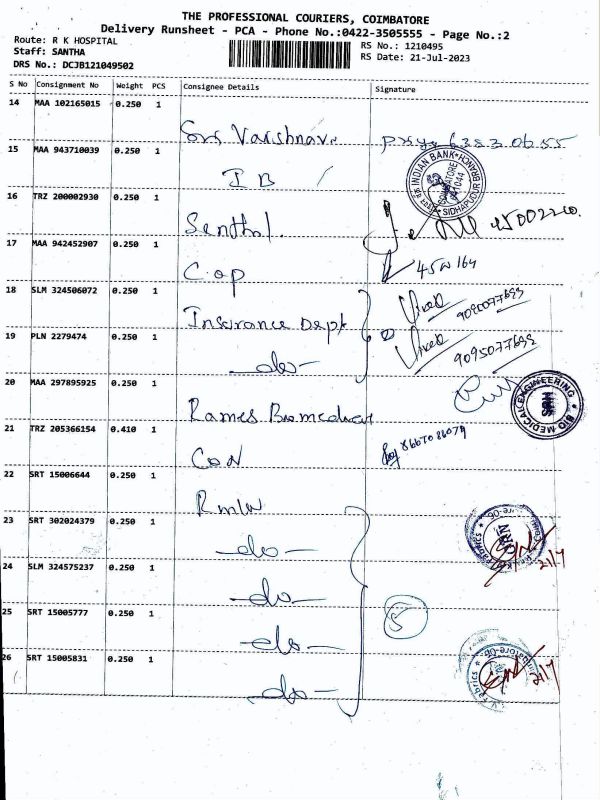 THE PROFESSIONAL COURIERS, COIMBATORE
Delivery Runsheet - PCA - Phone No.:0422-3505555 - Page No.:2
Route: R K HOSPITAL
Staff: SANTHA
DRS No.: DCJB121049502
RS No.: 1210495
RS Date: 21-Jul-2023
S No Consignment No Weight PCS Consignee Details Signature
14 MAA 102165015 0.250 1
Sri Varshnave
15 MAA 943710039 0.250 1
I B
INDIAN BANK
SIDHAPUDUR BRANCH
16 TRZ 200002930 0.250 1
Senthil.
17 MAA 942452907 0.250 1
C.O.P
18 SLM 324506072 0.250 1
Insurance Dept
Vivek
19 PLN 2279474 0.250 1
-do-
Vivek
9095077699
20 MAA 297895925 0.250 1
Rames Biomedical
BIO MEDICAL ENGINEERING
SRH
21 TRZ 205366154 0.410 1
CON
22 SRT 15006644 0.250 1
RMW
23 SRT 302024379 0.250 1
-do-
21/7
24 SLM 324575237 0.250 1
-do-
25 SRT 15005777 0.250 1
-do-
5
26 SRT 15005831 0.250 1
-do-
21/7